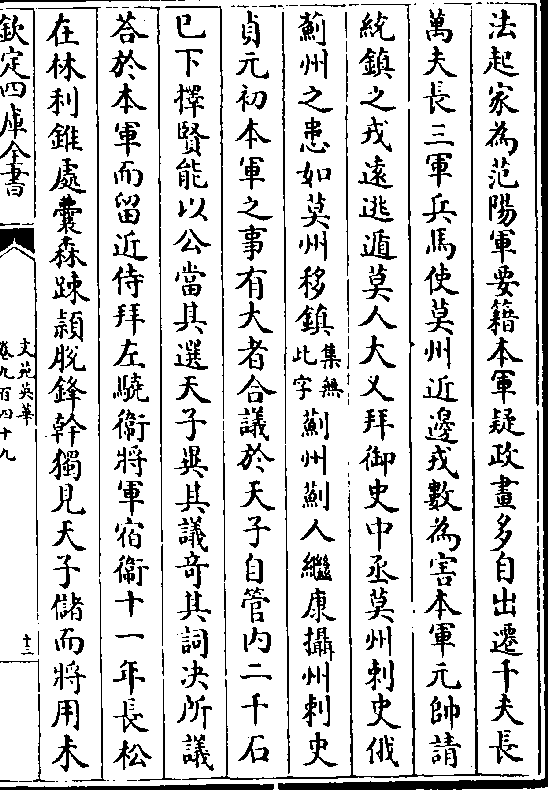 法起家為范陽軍要籍本軍疑政畫多自出遷千夫長
萬夫長三軍兵馬使莫州近邊戎數為害本軍元帥請
統鎮之戎遠逃遁莫人大乂拜御史中丞莫州刺史俄
薊州之患如莫州移鎮集無此字薊州薊人繼康攝州刺史
貞元初本軍之事有大者合議於天子自管內二千石
已下擇賢能以公當其選天子異其議竒其詞决所議
荅於本軍而留近侍拜左驍衛將軍宿衛十一年長松
在林利錐處囊森踈潁脫鋒幹獨見天子儲而將用未
欽定四庫全書
文苑英華
卷九百四十九
十三